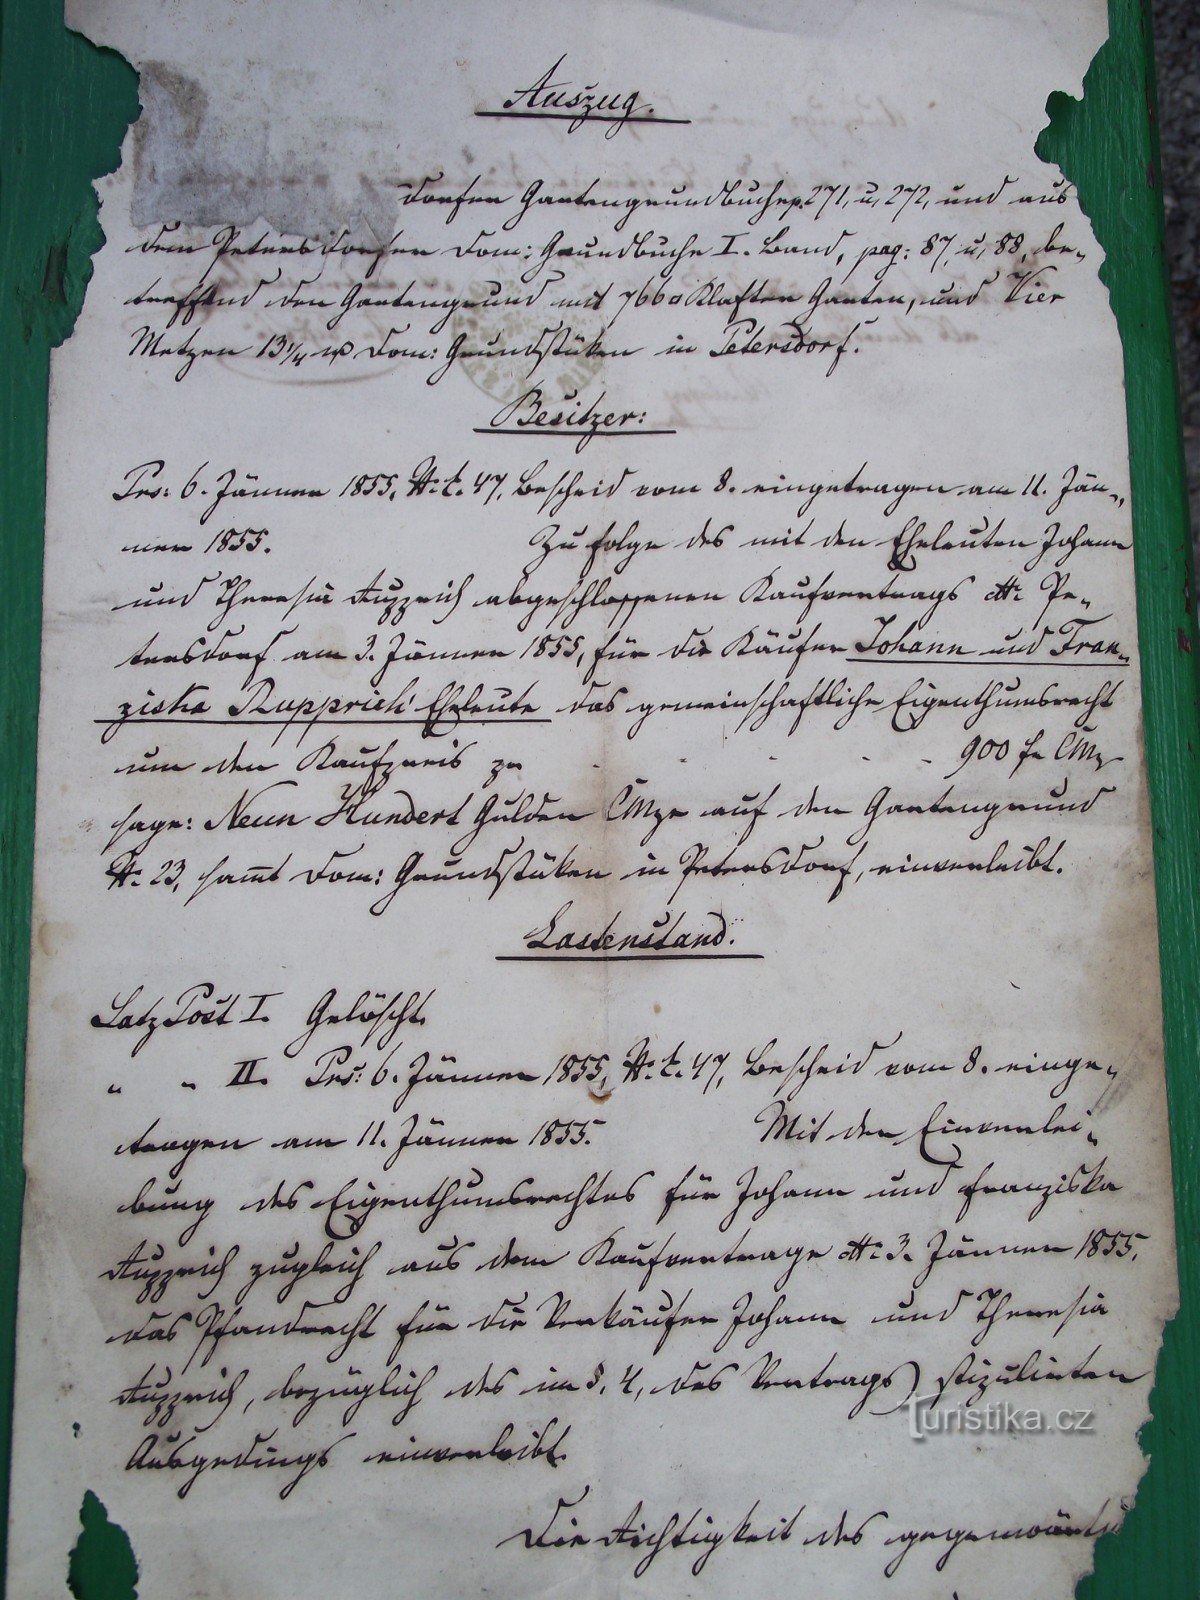 Auszug.
dorfer Gartengrundbuche p. 271, u, 272, und aus
dem Petersdorfer Dom: Grundbuche I. Band, pag: 87, u, 88, be-
treffend den Gartengrund mit 766 □ Klafter Garten, und Vier
Metzen 13 1/4 Dom: Grundstüken in Petersdorf.
Besitzer:
Prs: 6. Jänner 1855, N: E. 47, Bescheid vom 8. eingetragen am 11. Jän-
ner 1855. Zu folge des mit den Eheleuten Johann
und Theresia Rupprich abgeschlossenen Kaufvertrags dto: Pe-
tersdorf am 3. Jänner 1855, für die Käufer Johann und Fran-
ziska Rupprich Eheleute das gemeinschaftliche Eigenthumsrecht
um den Kaufpreis pr - - - - 900 fr CMz
sage: Neun Hundert Gulden CMze auf den Gartengrund
N: 23, sammt Dom: Grundstüken in Petersdorf, einverleibt.
Lastenstand.
Satz Post I. Gelöscht.
" " II. Prs: 6. Jänner 1855, N: E. 47, Bescheid vom 8. einge-
tragen am 11. Jänner 1855. Mit der Einverlei-
bung des Eigenthumsrechtes für Johann und Franziska
Rupprich zugleich aus dem Kaufvertrage dto: 3. Jänner 1855,
das Pfandrecht für die Verkäufer Johann und Theresia
Rupprich, bezüglich des im §. 4, des Vertrags stipulirten
Ausgedings einverleibt.
Die Richtigkeit des gegenwärti
Turistika.cz